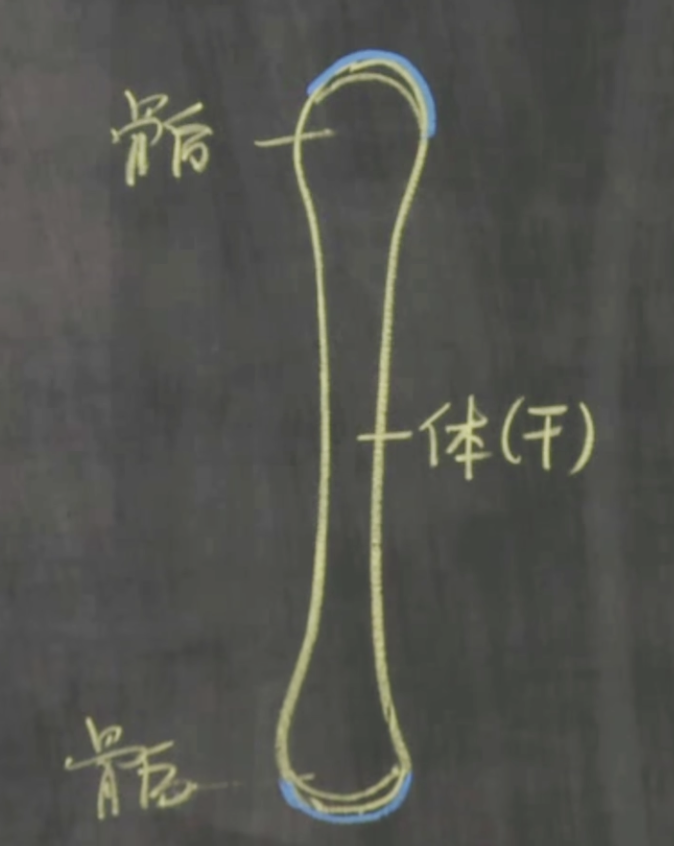 骺
体(干)
骺